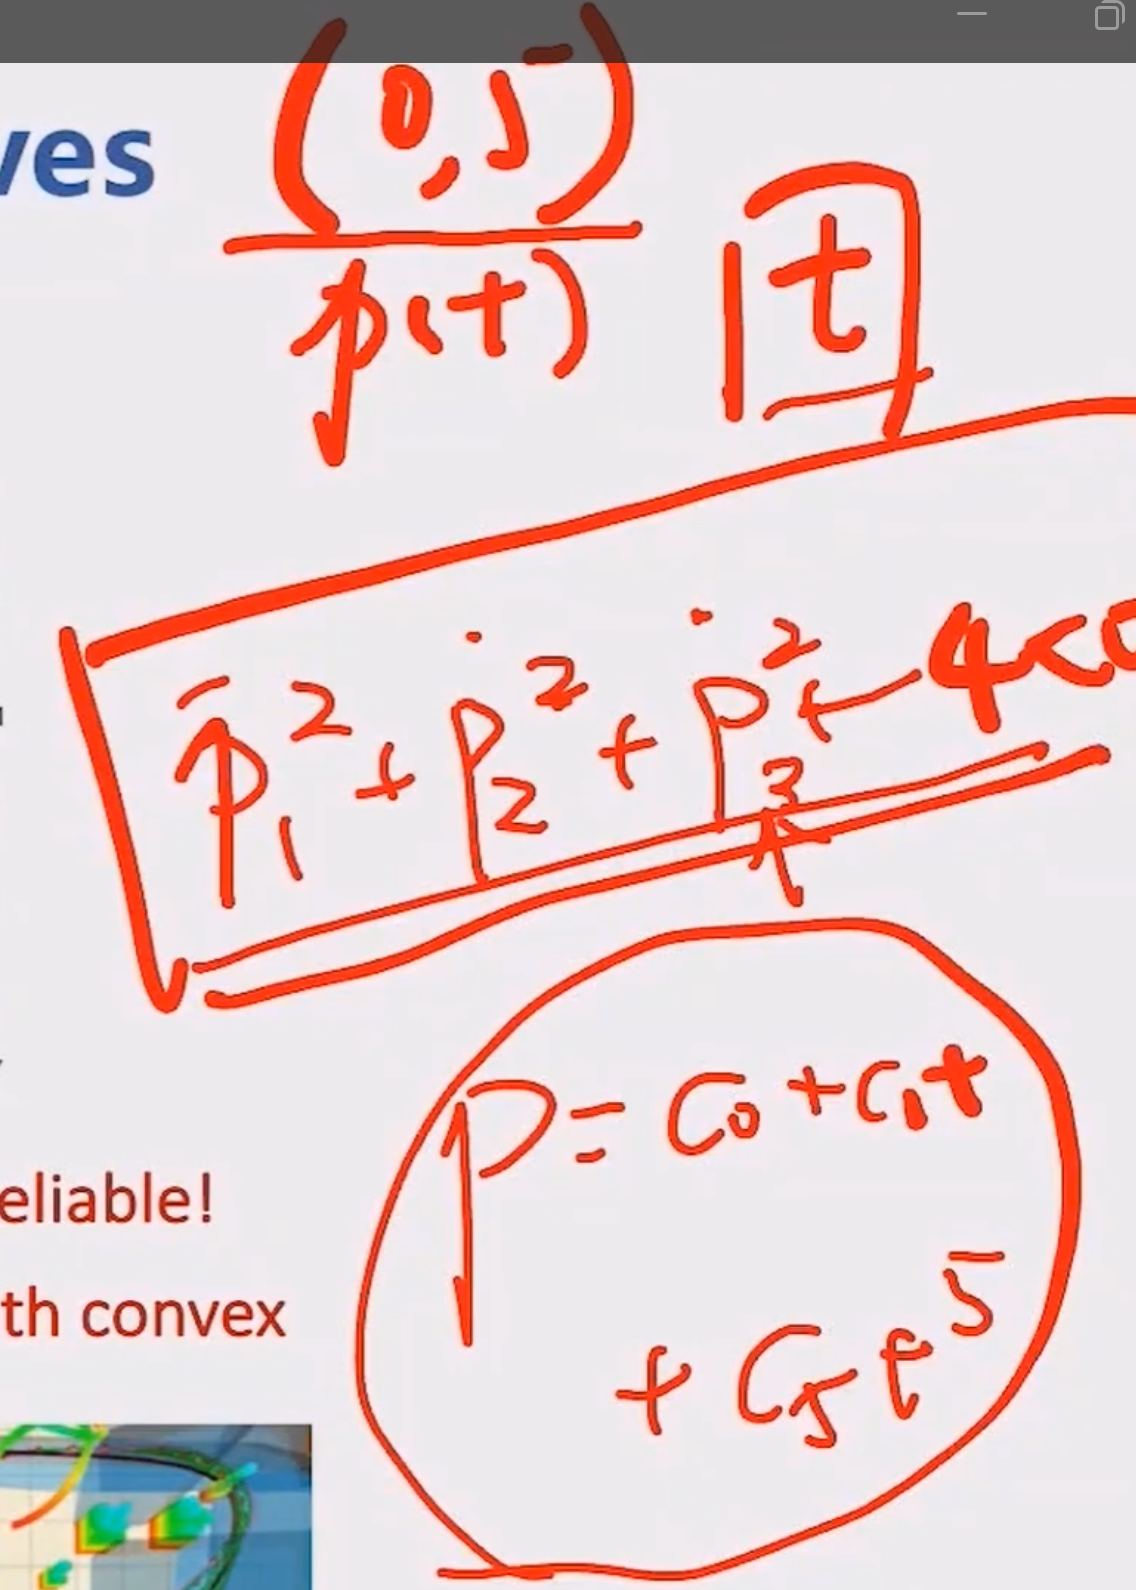 ves
(0,5)
p(t)
t
ṗ₁² + ṗ₂² + ṗ₃² - 4 <
p = c₀ + c₁t
+ c₅t⁵
eliable!
th convex